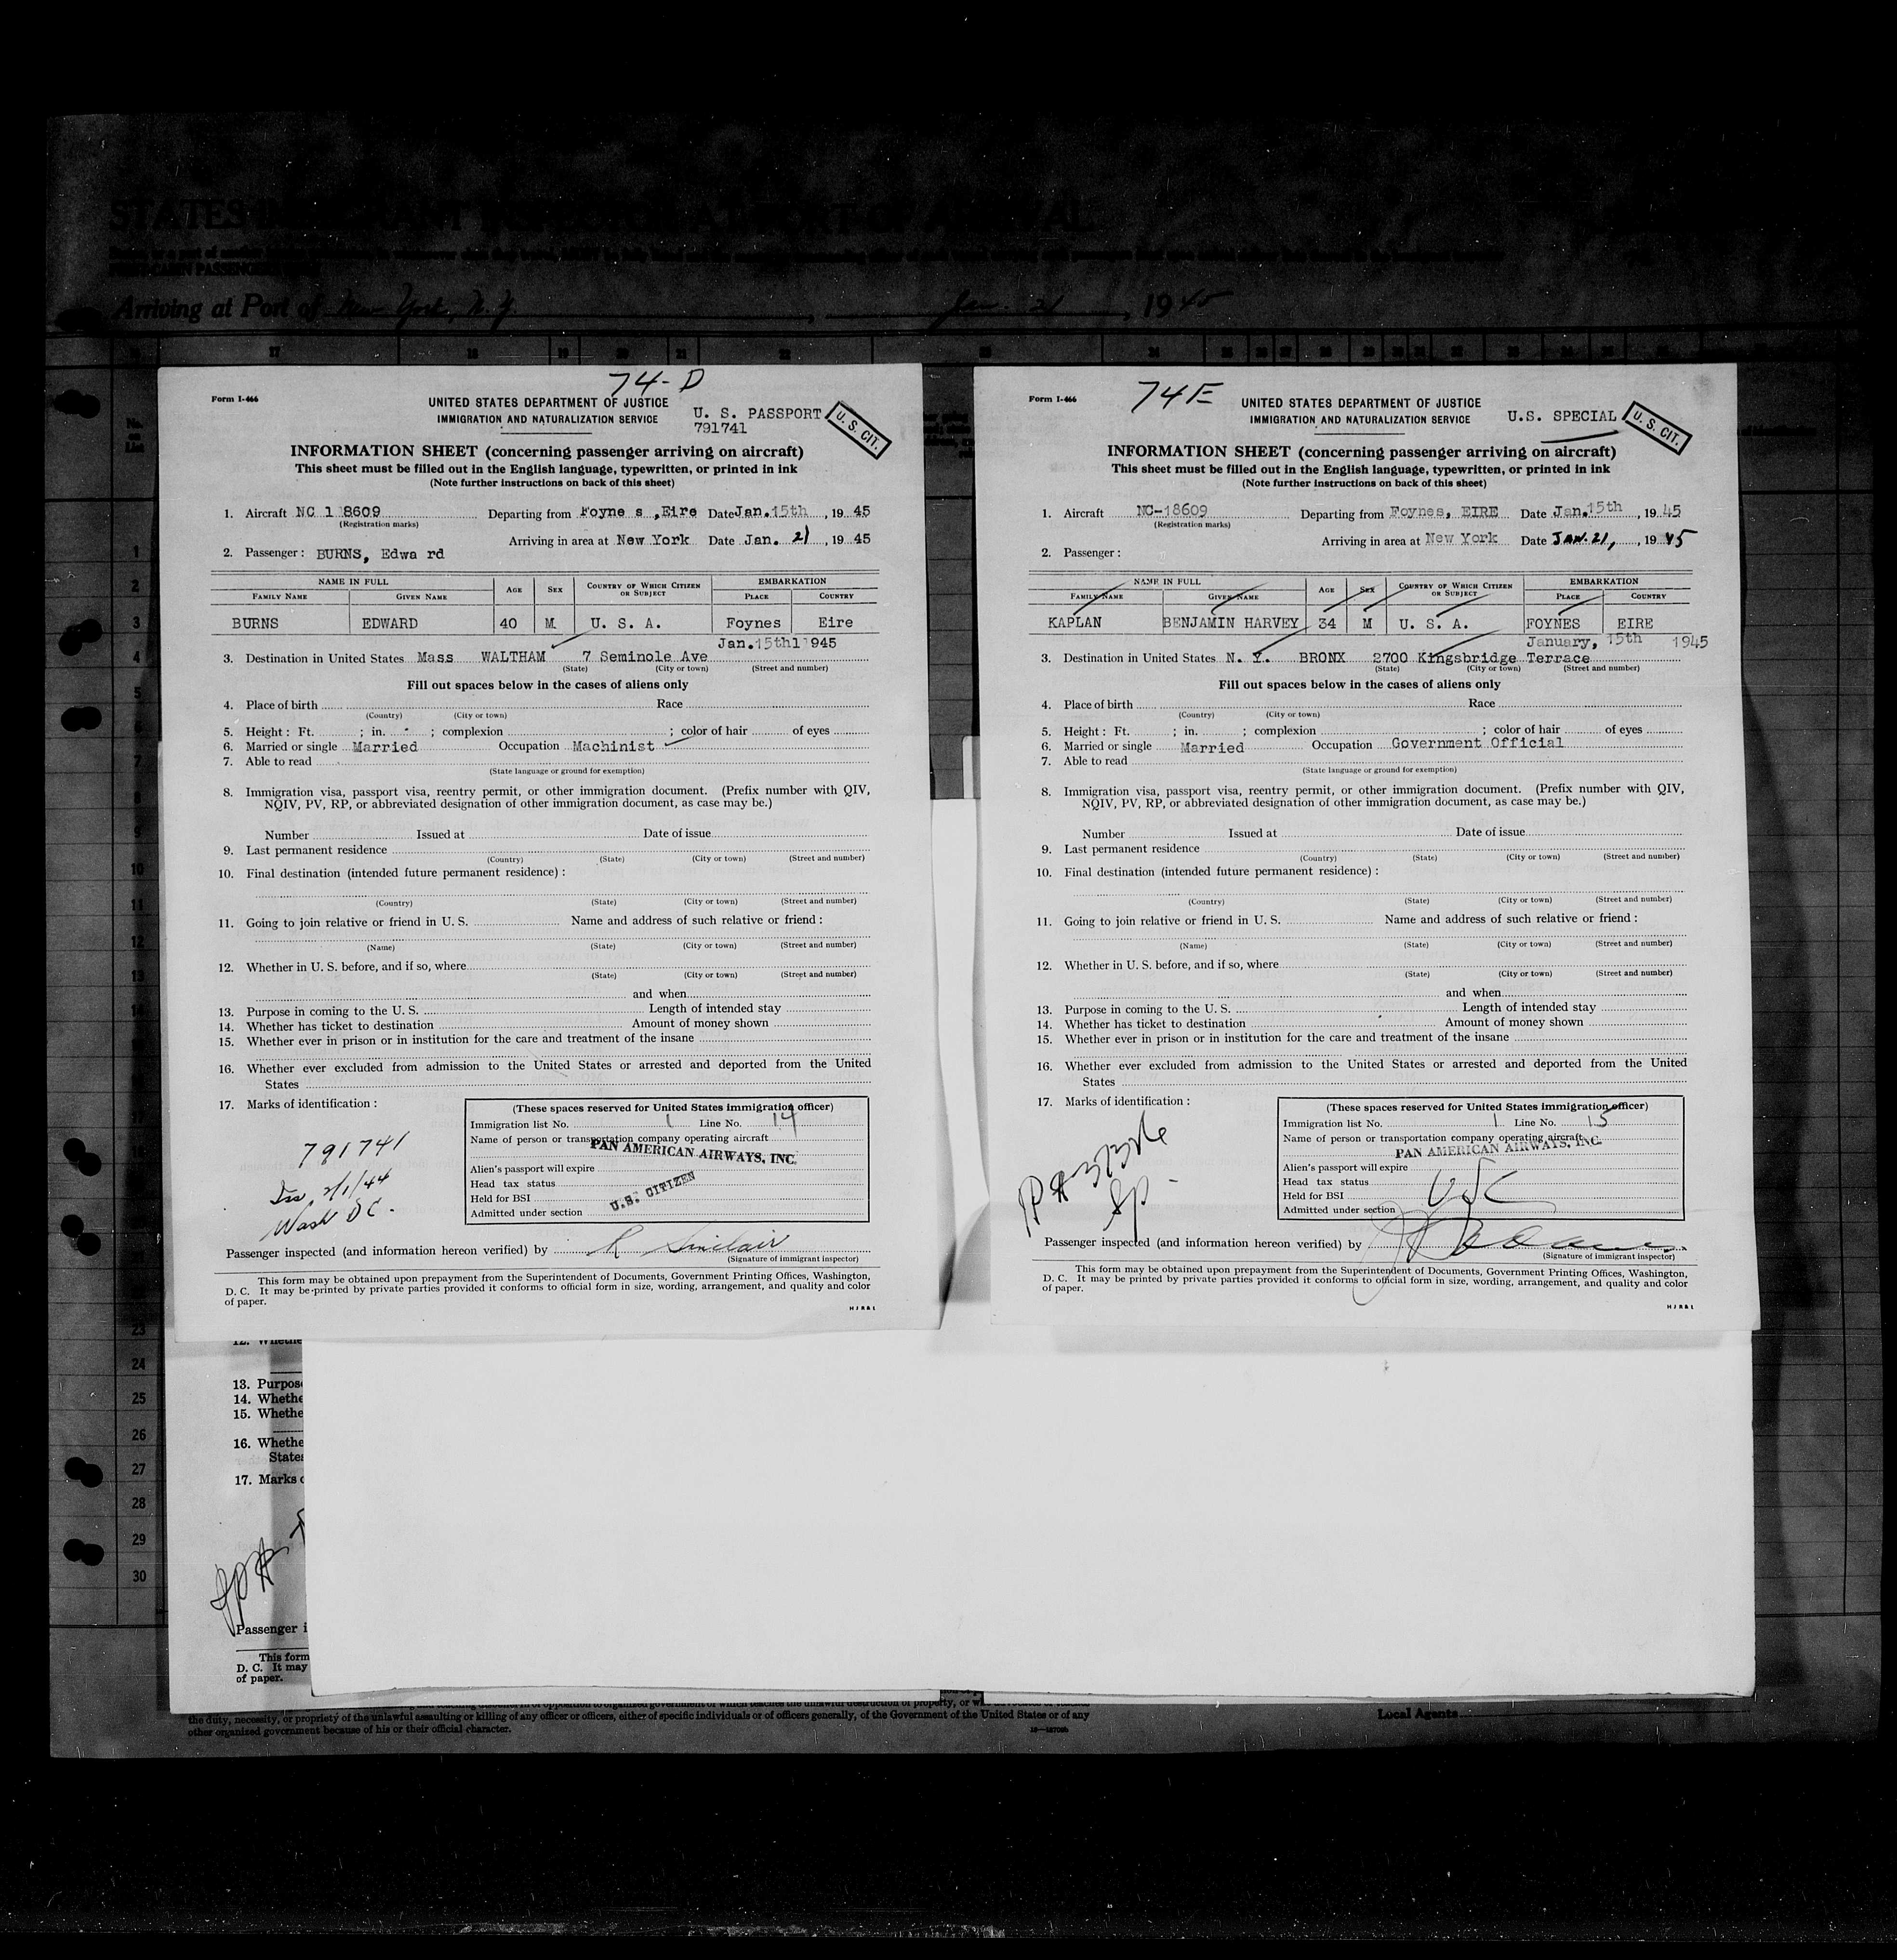 Arriving at Port of New York, N.Y. , Jan. 21 , 1945
74-D
Form I-466
UNITED STATES DEPARTMENT OF JUSTICE
IMMIGRATION AND NATURALIZATION SERVICE
U. S. PASSPORT
791741
U. S. CIT.
INFORMATION SHEET (concerning passenger arriving on aircraft)
This sheet must be filled out in the English language, typewritten, or printed in ink
(Note further instructions on back of this sheet)
1. Aircraft NC 1 8609 Departing from Foyne s ,Eire Date Jan.15th , 19 45
(Registration marks)
Arriving in area at New York Date Jan. 21 , 19 45
2. Passenger : BURNS, Edwa rd
NAME IN FULL AGE SEX COUNTRY OF WHICH CITIZEN OR SUBJECT EMBARKATION
FAMILY NAME GIVEN NAME PLACE COUNTRY
BURNS EDWARD 40 M U. S. A. Foynes Eire
Jan.15th1 945
3. Destination in United States Mass WALTHAM 7 Seminole Ave
(State) (City or town) (Street and number)
Fill out spaces below in the cases of aliens only
4. Place of birth Race
(Country) (City or town)
5. Height : Ft. ; in. ; complexion ; color of hair of eyes
6. Married or single Married Occupation Machinist
7. Able to read
(State language or ground for exemption)
8. Immigration visa, passport visa, reentry permit, or other immigration document. (Prefix number with QIV,
NQIV, PV, RP, or abbreviated designation of other immigration document, as case may be.)
Number Issued at Date of issue
9. Last permanent residence
(Country) (State) (City or town) (Street and number)
10. Final destination (intended future permanent residence) :
(Country) (State) (City or town) (Street and number)
11. Going to join relative or friend in U. S. Name and address of such relative or friend :
(Name) (State) (City or town) (Street and number)
12. Whether in U. S. before, and if so, where
(State) (City or town) (Street and number)
and when
13. Purpose in coming to the U. S. Length of intended stay
14. Whether has ticket to destination Amount of money shown
15. Whether ever in prison or in institution for the care and treatment of the insane
16. Whether ever excluded from admission to the United States or arrested and deported from the United
States
17. Marks of identification :
(These spaces reserved for United States immigration officer)
Immigration list No. 1 Line No. 14
Name of person or transportation company operating aircraft
PAN AMERICAN AIRWAYS, INC.
Alien's passport will expire
Head tax status
Held for BSI
U.S. CITIZEN
Admitted under section
791741
Iss. 2/1/44
Wash DC.
Passenger inspected (and information hereon verified) by R Sinclair
(Signature of immigrant inspector)
This form may be obtained upon prepayment from the Superintendent of Documents, Government Printing Offices, Washington,
D. C. It may be printed by private parties provided it conforms to official form in size, wording, arrangement, and quality and color
of paper.
74E
Form I-466
UNITED STATES DEPARTMENT OF JUSTICE
IMMIGRATION AND NATURALIZATION SERVICE
U.S. SPECIAL
U. S. CIT.
INFORMATION SHEET (concerning passenger arriving on aircraft)
This sheet must be filled out in the English language, typewritten, or printed in ink
(Note further instructions on back of this sheet)
1. Aircraft NC-18609 Departing from Foynes, EIRE Date Jan.15th , 19 45
(Registration marks)
Arriving in area at New York Date JAN. 21, , 19 45
2. Passenger :
NAME IN FULL AGE SEX COUNTRY OF WHICH CITIZEN OR SUBJECT EMBARKATION
FAMILY NAME GIVEN NAME PLACE COUNTRY
KAPLAN BENJAMIN HARVEY 34 M U. S. A. FOYNES EIRE
January, 15th 1945
3. Destination in United States N. Y. BRONX 2700 Kingsbridge Terrace
(State) (City or town) (Street and number)
Fill out spaces below in the cases of aliens only
4. Place of birth Race
(Country) (City or town)
5. Height : Ft. ; in. ; complexion ; color of hair of eyes
6. Married or single Married Occupation Government Official
7. Able to read
(State language or ground for exemption)
8. Immigration visa, passport visa, reentry permit, or other immigration document. (Prefix number with QIV,
NQIV, PV, RP, or abbreviated designation of other immigration document, as case may be.)
Number Issued at Date of issue
9. Last permanent residence
(Country) (State) (City or town) (Street and number)
10. Final destination (intended future permanent residence) :
(Country) (State) (City or town) (Street and number)
11. Going to join relative or friend in U. S. Name and address of such relative or friend :
(Name) (State) (City or town) (Street and number)
12. Whether in U. S. before, and if so, where
(State) (City or town) (Street and number)
and when
13. Purpose in coming to the U. S. Length of intended stay
14. Whether has ticket to destination Amount of money shown
15. Whether ever in prison or in institution for the care and treatment of the insane
16. Whether ever excluded from admission to the United States or arrested and deported from the United
States
17. Marks of identification :
(These spaces reserved for United States immigration officer)
Immigration list No. 1 Line No. 15
Name of person or transportation company operating aircraft
PAN AMERICAN AIRWAYS, INC.
Alien's passport will expire
Head tax status
Held for BSI
Admitted under section
USC
Sp.
Passenger inspected (and information hereon verified) by
(Signature of immigrant inspector)
This form may be obtained upon prepayment from the Superintendent of Documents, Government Printing Offices, Washington,
D. C. It may be printed by private parties provided it conforms to official form in size, wording, arrangement, and quality and color
of paper.
13. Purpos
14. Whethe
15. Whethe
16. Whethe
States
17. Marks
Passenger i
This form
D. C. It may
of paper.
the duty, necessity, or propriety of the unlawful assaulting or killing of any officer or officers, either of specific individuals or of officers generally, of the Government of the United States or of any
other organized government because of his or their official character.
Local Agents